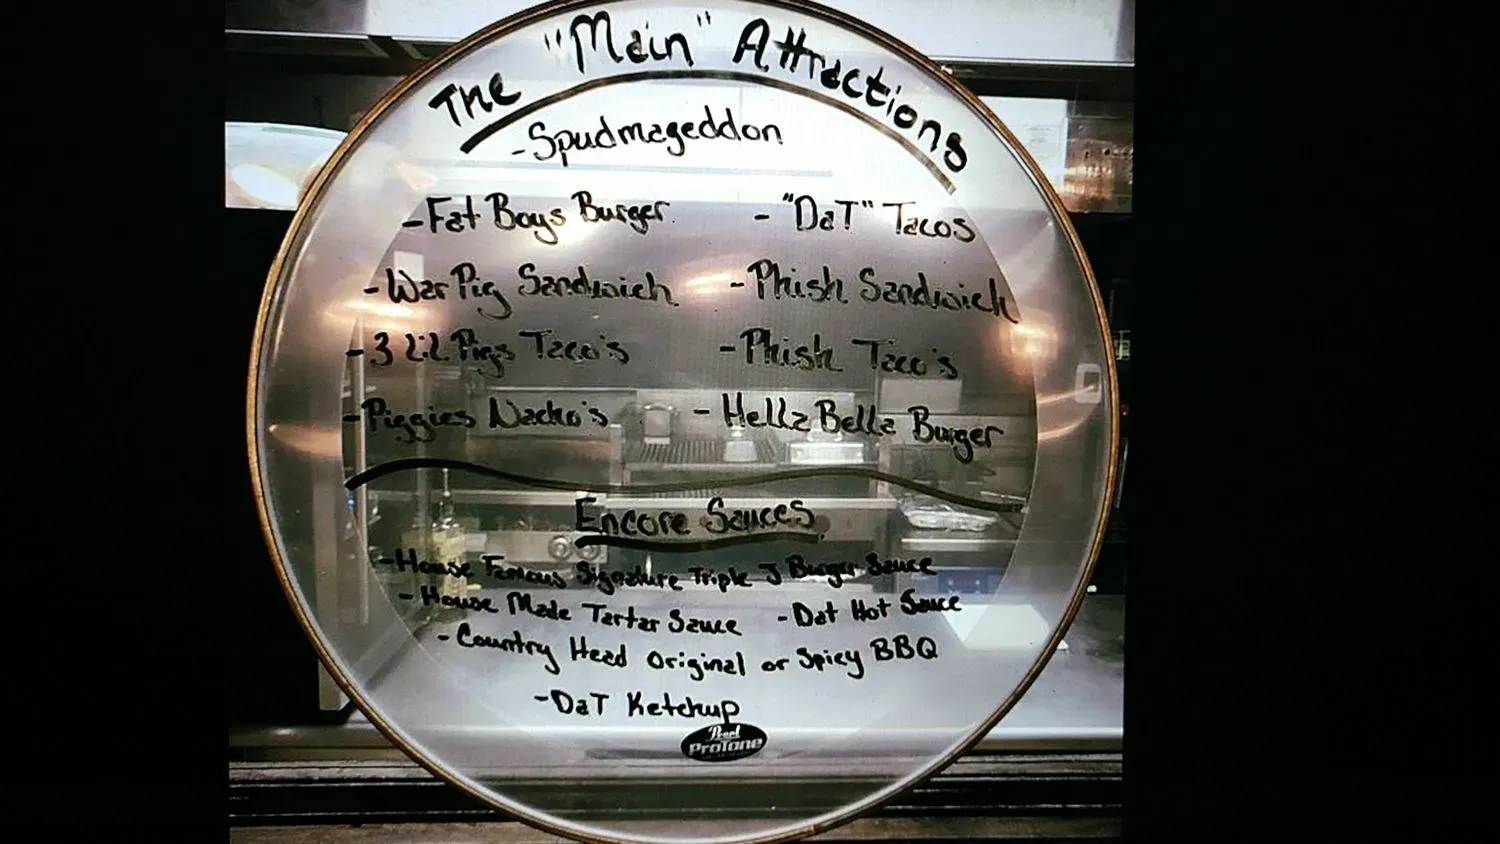 The "Main" Attractions
-Spudmageddon
-Fat Boys Burger
-"DaT" Tacos
-War Pig Sandwich
-Phish Sandwich
-3 Lil Pigs Taco's
-Phish Taco's
-Piggies Nacho's
-Hella Bella Burger
Encore Sauces
-House Famous Signature Triple J Burger Sauce
-House Made Tartar Sauce -Dat Hot Sauce
-Country Head Original or Spicy BBQ
-DaT Ketchup
Pearl
ProTone